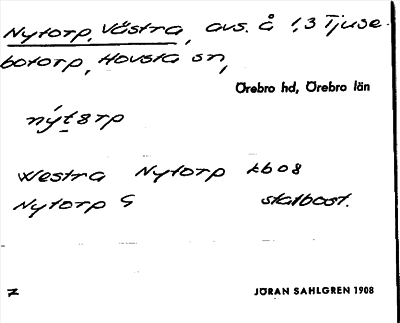 Nytorp, Västra, avs. å 1,3 Tjuse-
botorp, Hovsta sn,
Örebro hd, Örebro län
nýt8rp
Westra Nytorp kb08
Nytorp G skattbost.
7
JÖRAN SAHLGREN 1908